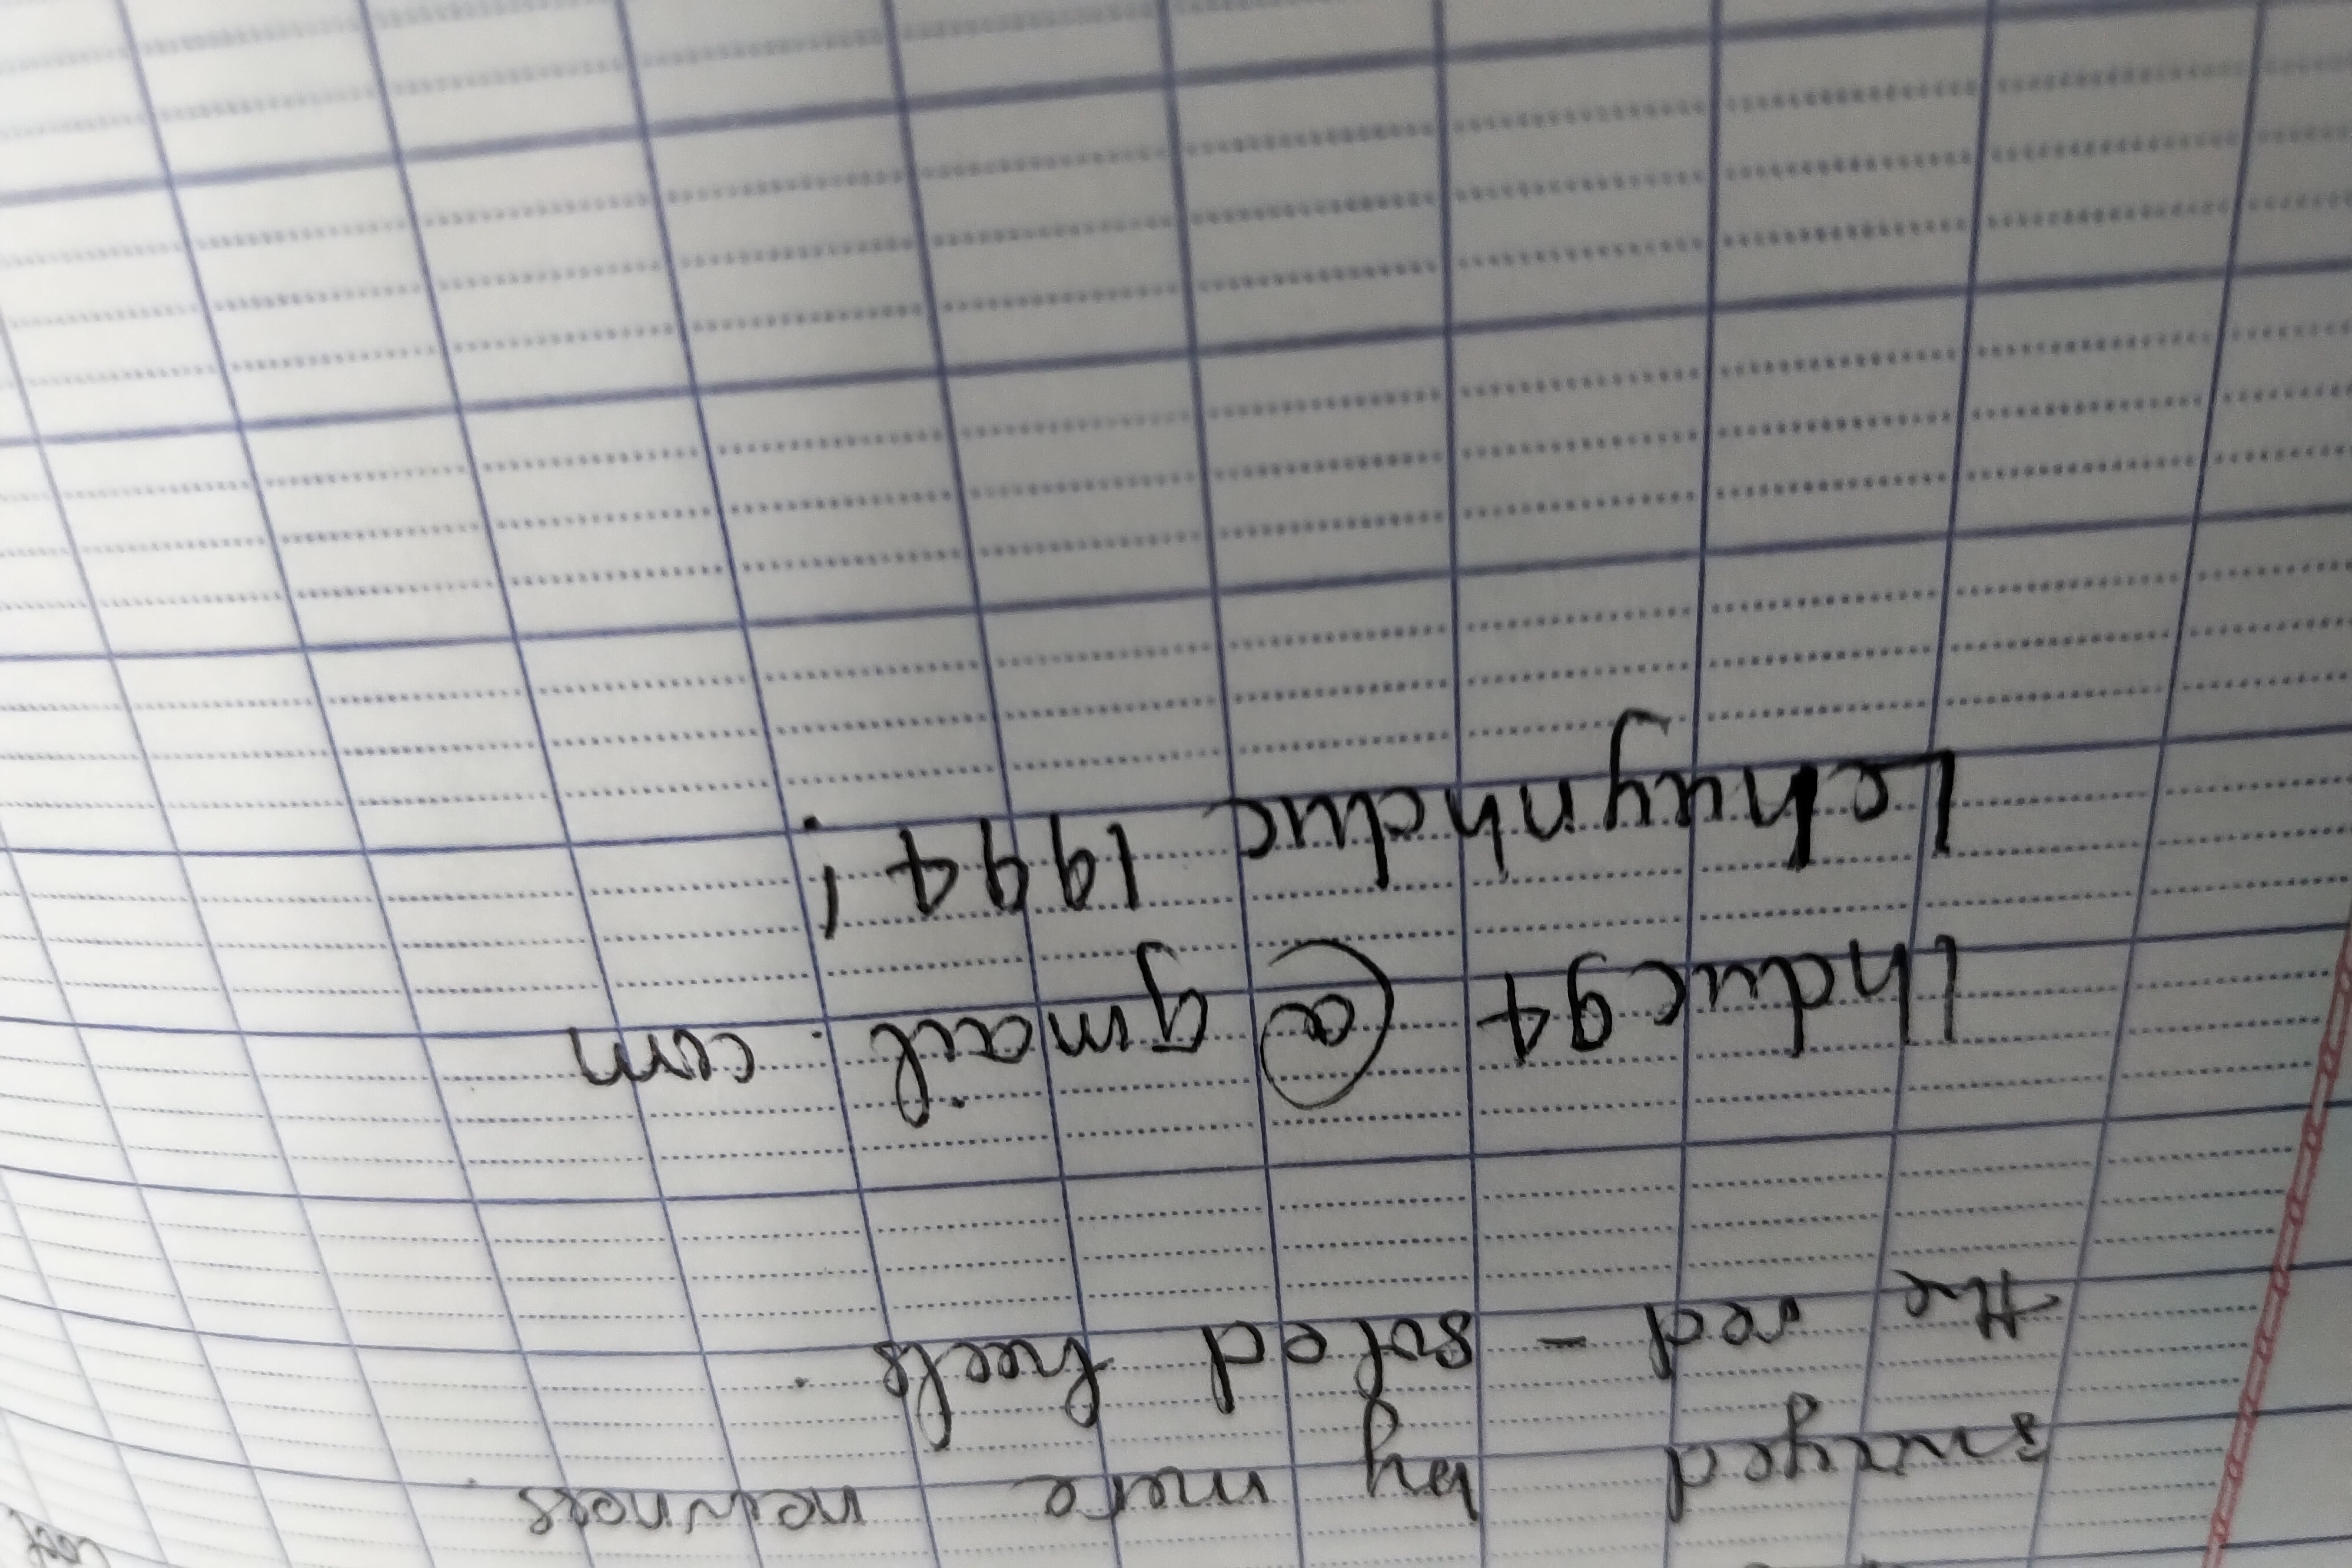 swayed by mere newness.
the red - soled heels.
lhduc94@gmail.com
Lehuynhduc 1994!